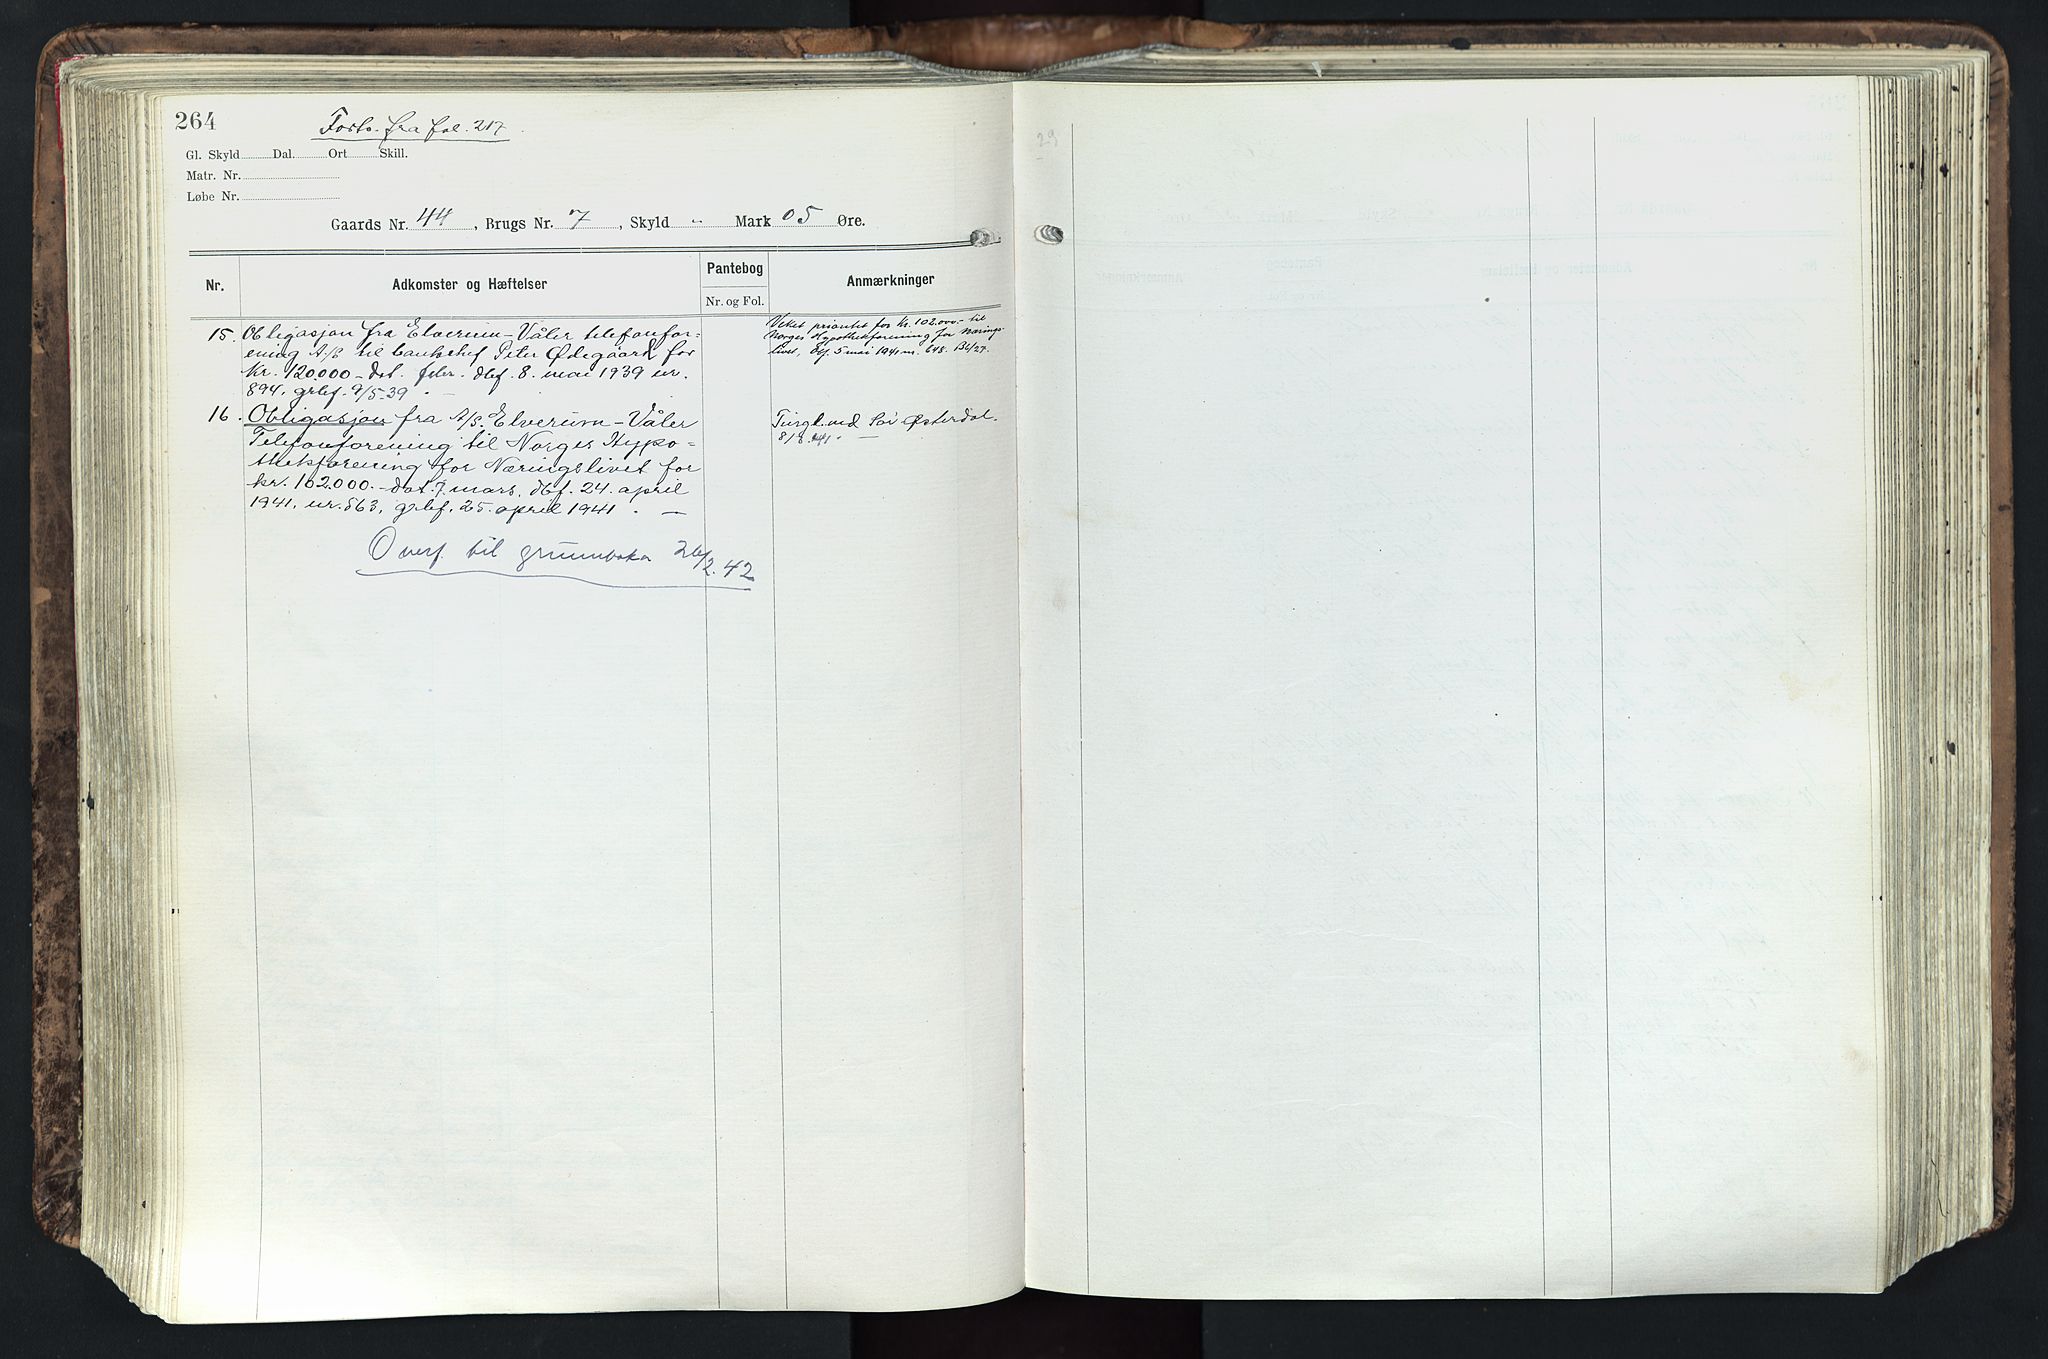 264
Forts. fra fol. 217.
Gl. Skyld Dal. Ort Skill.
Matr. Nr.
Løbe Nr.
Gaards Nr. 44, Brugs Nr. 7, Skyld " Mark 05 Øre.
Nr. Adkomster og Hæftelser Pantebog Anmærkninger
Nr. og Fol.
15. Obligasjon fra Elverum-Våler telefonfor-
ening A/S til banksjef Peter Ødegaard for
Kr. 120.000 - dat. febr. dbf. 8. mai 1939 nr.
894, grbf. 9/5-39 -
Veket prioritet for Kr. 102.000.- til
Norges Hypothekforening for Nærings-
livet, Dbf. 5 mai 1941 nr. 648. Bl/27.
16. Obligasjon fra A/S. Elverum-Våler
Telefonforening til Norges Hypo=
thekforening for Næringslivet for
kr. 102.000.- dat. 7. mars, dbf. 24. april
1941, nr. 563, grbf. 25. april 1941. -
Tingl. ved Sør Østerdal.
8/8.41. -
Overf. til grunnboka 26/2.42
29